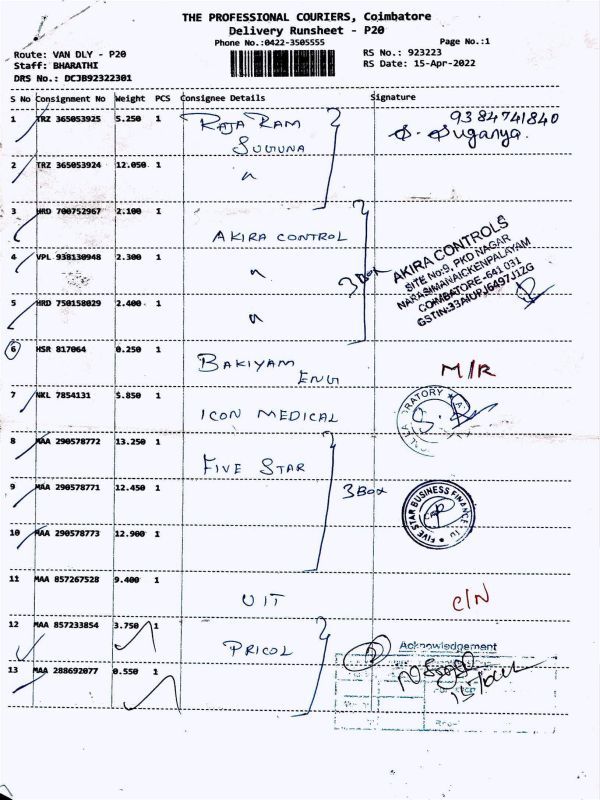 THE PROFESSIONAL COURIERS, Coimbatore
Delivery Runsheet - P20
Phone No.:0422-3505555
Page No.:1
Route: VAN DLY - P20
RS No.: 923223
Staff: BHARATHI
RS Date: 15-Apr-2022
DRS No.: DCJB92322301
S No Consignment No Weight PCS Consignee Details Signature
1 TRZ 365053925 5.250 1 RAJA RAM SUGUNA 9384741840
S. Suganya.
2 TRZ 365053924 12.050 1 "
3 HRD 700752967 2.100 1 AKIRA CONTROL
4 VPL 938130948 2.300 1 "
5 HRD 750158029 2.400 1 "
3 Box
AKIRA CONTROLS
SITE No:9, PKD NAGAR
NARASIMANAICKENPALAYAM
COIMBATORE-641 031
GSTIN:33AIUPJ6497J1ZG
6 HSR 817064 0.250 1 BAKIYAM ENG M/R
7 NKL 7854131 5.850 1 ICON MEDICAL
8 MAA 290578772 13.250 1 FIVE STAR
9 MAA 290578771 12.450 1 3 Box
FIVE STAR BUSINESS FINANCE
10 MAA 290578773 12.900 1
11 MAA 857267528 9.400 1 UIT C/N
12 MAA 857233854 3.750 1 PRICOL 2 Acknowledgement
13 MAA 288692077 0.550 1